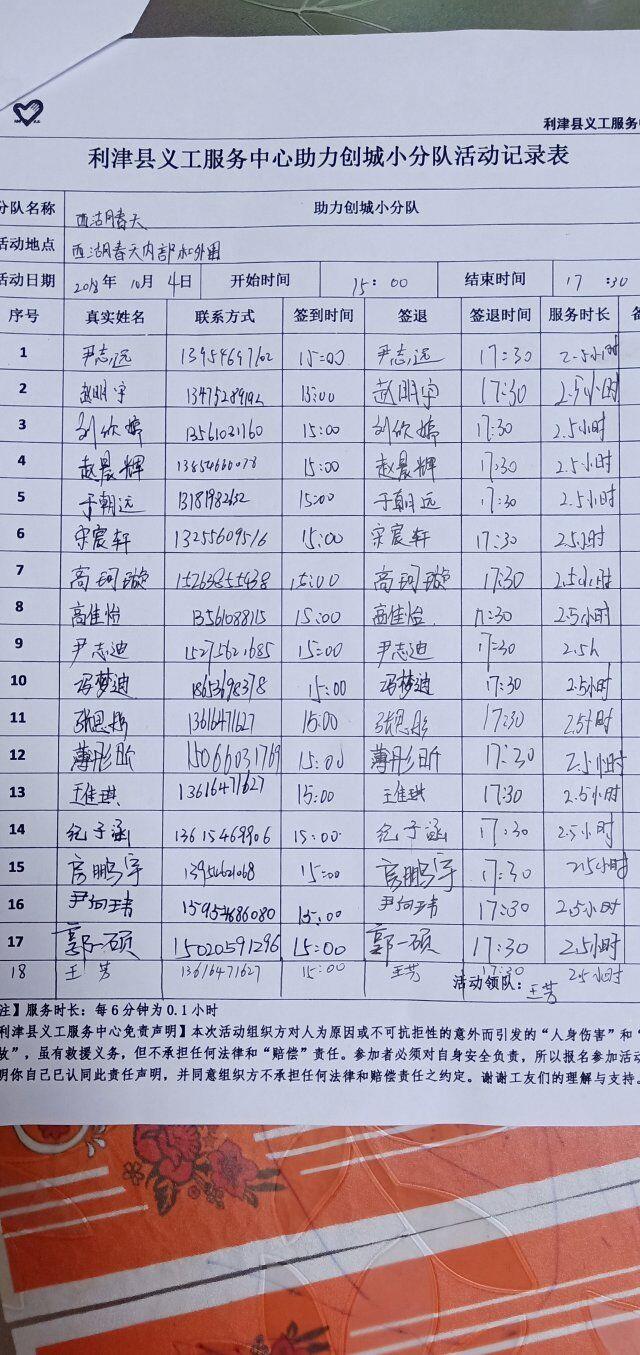 利津县义工服务中
利津县义工服务中心助力创城小分队活动记录表
分队名称 西湖春天 助力创城小分队
活动地点 西湖春天内部和外围
活动日期 2018年 10月 4日 开始时间 15:00 结束时间 17:30
序号 真实姓名 联系方式 签到时间 签退 签退时间 服务时长 备
1 尹志远 13954697102 15:00 尹志远 17:30 2.5小时
2 赵明宇 15:00 赵明宇 17:30 2.5小时
3 刘欣婷 13561031760 15:00 刘欣婷 17:30 2.5小时
4 赵晨辉 15:00 赵晨辉 17:30 2.5小时
5 于朝远 15:00 于朝远 17:30 2.5小时
6 宋宸轩 13255609516 15:00 宋宸轩 17:30 2.5小时
7 高珂璇 15263855438 15:00 高珂璇 17:30 2.5小时
8 高佳怡 13561088115 15:00 高佳怡 17:30 2.5小时
9 尹志迪 15275621685 15:00 尹志迪 17:30 2.5h
10 冯梦迪 18653698378 15:00 冯梦迪 17:30 2.5小时
11 张恩彤 13616471627 15:00 张恩彤 17:30 2.5小时
12 薄彤昕 15066031769 15:00 薄彤昕 17:30 2.5小时
13 王佳琪 13616471627 15:00 王佳琪 17:30 2.5小时
14 纪子涵 13615469906 15:00 纪子涵 17:30 2.5小时
15 鹏宇 15:00 鹏宇 17:30 2.5小时
16 15:00 17:30 2.5小时
17 郭一硕 15020591296 15:00 郭一硕 17:30 2.5小时
18 王芳 13616471627 15:00 王芳 17:30 2.5小时
活动领队：王芳
注】服务时长：每6分钟为0.1小时
利津县义工服务中心免责声明】本次活动组织方对人为原因或不可抗拒性的意外而引发的“人身伤害”和“
故”，虽有救援义务，但不承担任何法律和“赔偿”责任。参加者必须对自身安全负责，所以报名参加活动
明你自己已认同此责任声明，并同意组织方不承担任何法律和赔偿责任之约定。谢谢工友们的理解与支持。